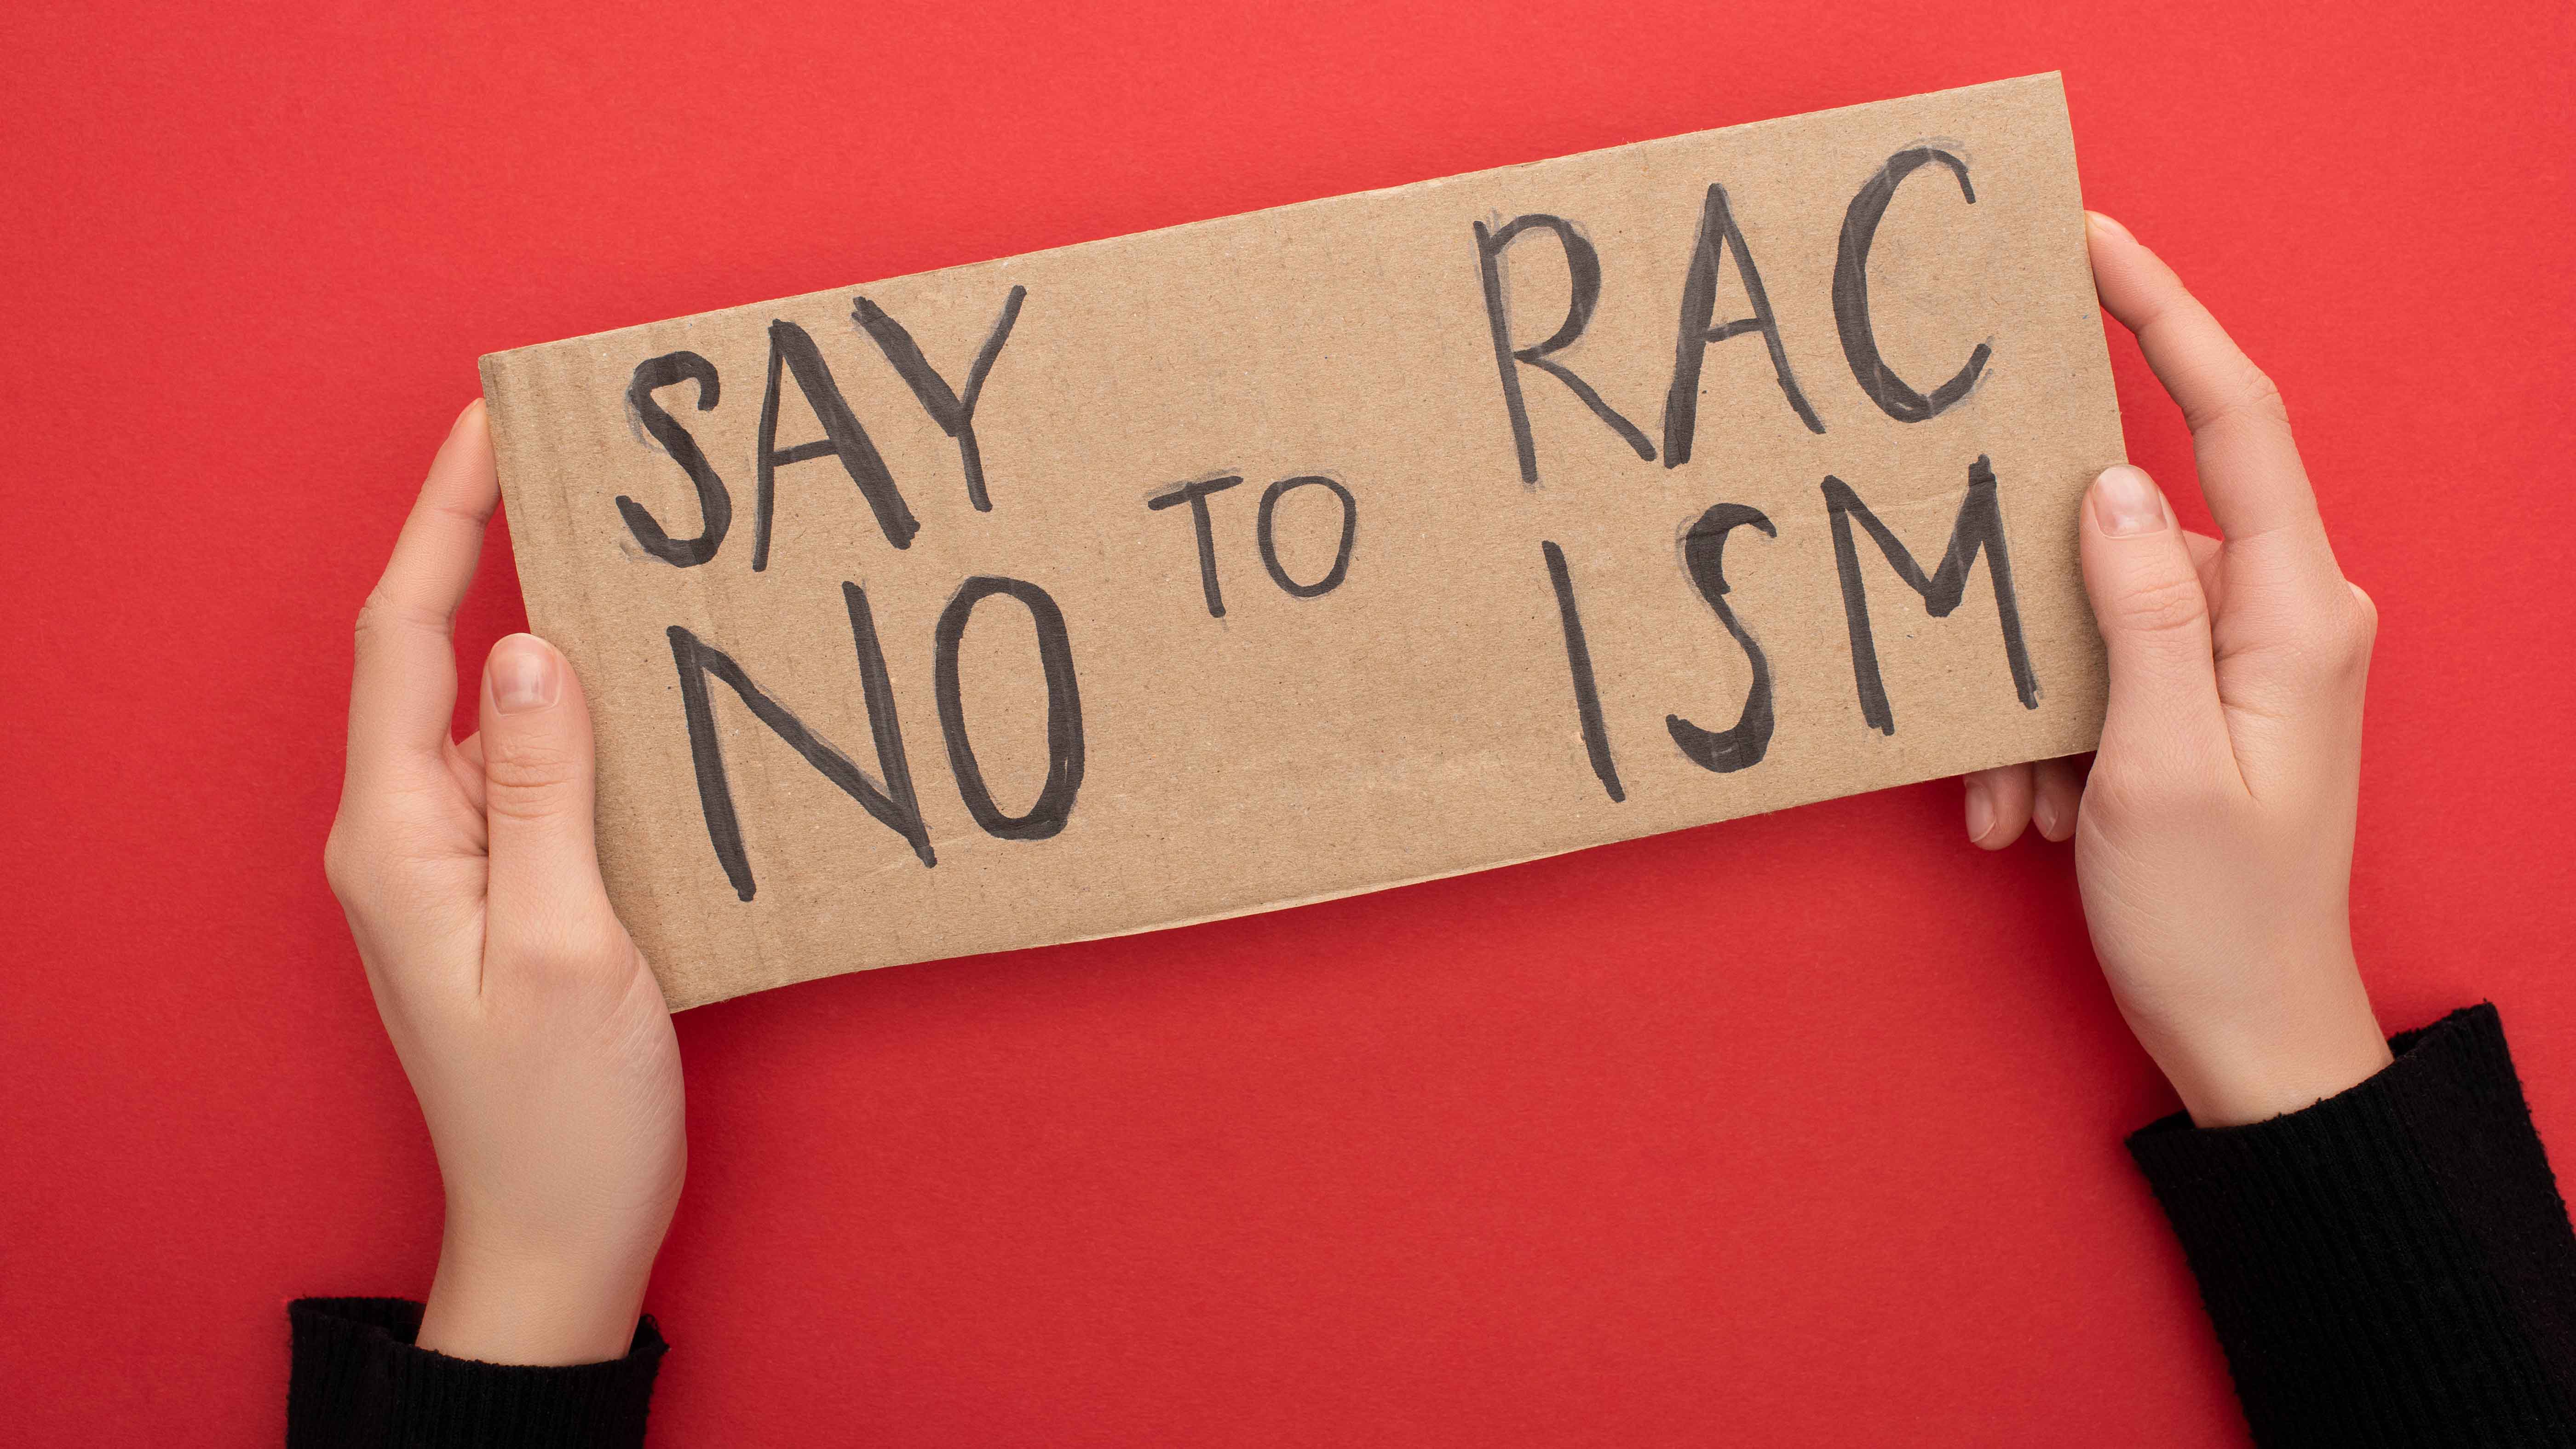 SAY
NO
TO
RAC
ISM